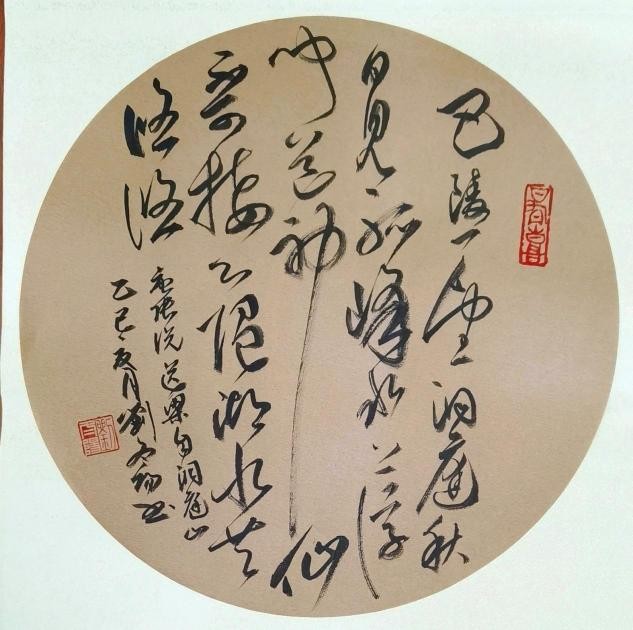 巴陵一望洞庭秋
日见孤峰水上浮
闻道神仙
不可接心随湖水共
悠悠
张说送梁自洞庭山
乙巳夏月劉书